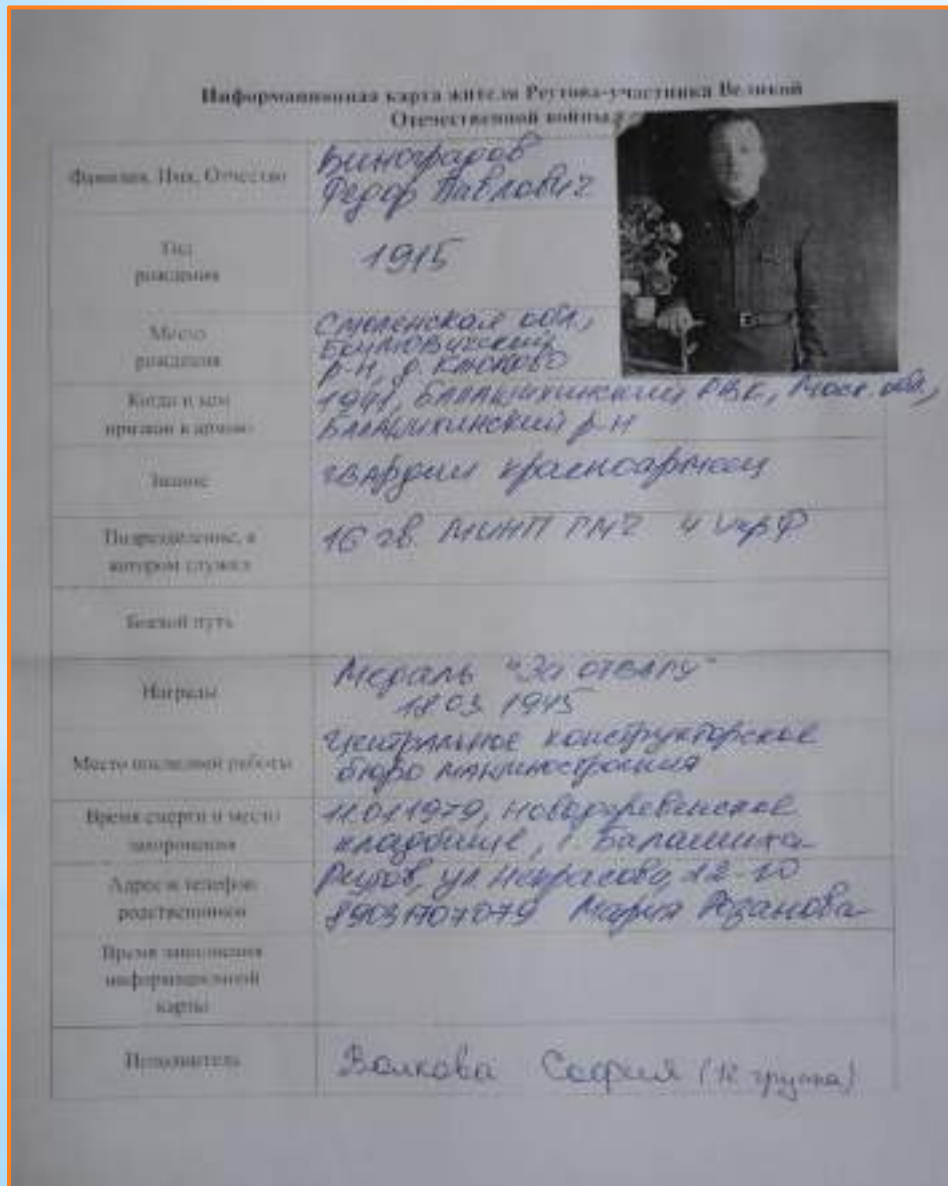 Информационная карта жителя Реутова-участника Великой
Отечественной войны
Фамилия, Имя, Отчество
Виноградов
Федор Павлович
Год
рождения
1915
Место
рождения
Смоленская обл.,
р-н, д.
Когда и кем
призван в армию
1941, Балашихинский РВК, Моск. обл.,
Балашихинский р-н
Звание
гвардии красноармеец
Подразделение, в
котором служил
16 гв. МИНП ГМЧ 4 Укр Ф
Боевой путь
Награды
Медаль "За отвагу"
18.03 1945
Место последней работы
Центральное конструкторское
бюро машиностроения
Время смерти и место
захоронения
11.01.1979, Новодеревенское
кладбище, г. Балашиха
Адрес и телефон
родственников
Реутов, ул. Некрасова, 12-10
89031707079 Мария
Время заполнения
информационной
карты
Исполнитель
Волкова София (12 группа)